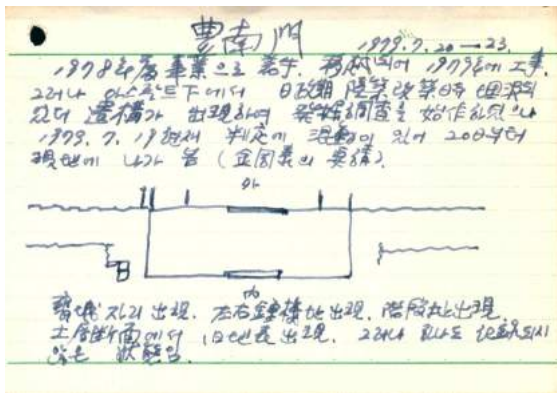 豊南門
1979.7.20 — 23.
1978年度 事業으로 着手. 移越되어 1979年에 工事.
그러나 아스팔트下에서 日政期 隆築改築時 埋沒되
었던 遺構가 出現하여 發掘調査를 始作하였으나
1979. 7. 19 現在 判定에 混動이 있어 20日부터
現地에 나가 봄 (金因義의 要請).
外
內
甕城 자리 出現. 左右 鍾樓址 出現. 階段址 出現.
土層断面에서 旧地表 出現. 그러나 하나도 記録되지
않은 狀態임.